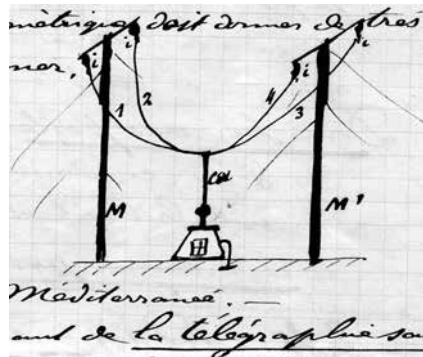 métrique doit donner de très
i i i i
ner,
1 2 4 3
M M'
Méditerranée. —
de la télégraphie